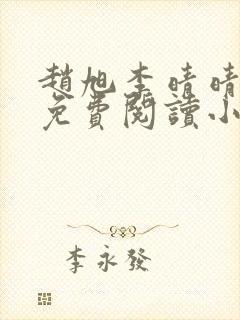 趙旭李晴晴
免費閱讀小
李永發